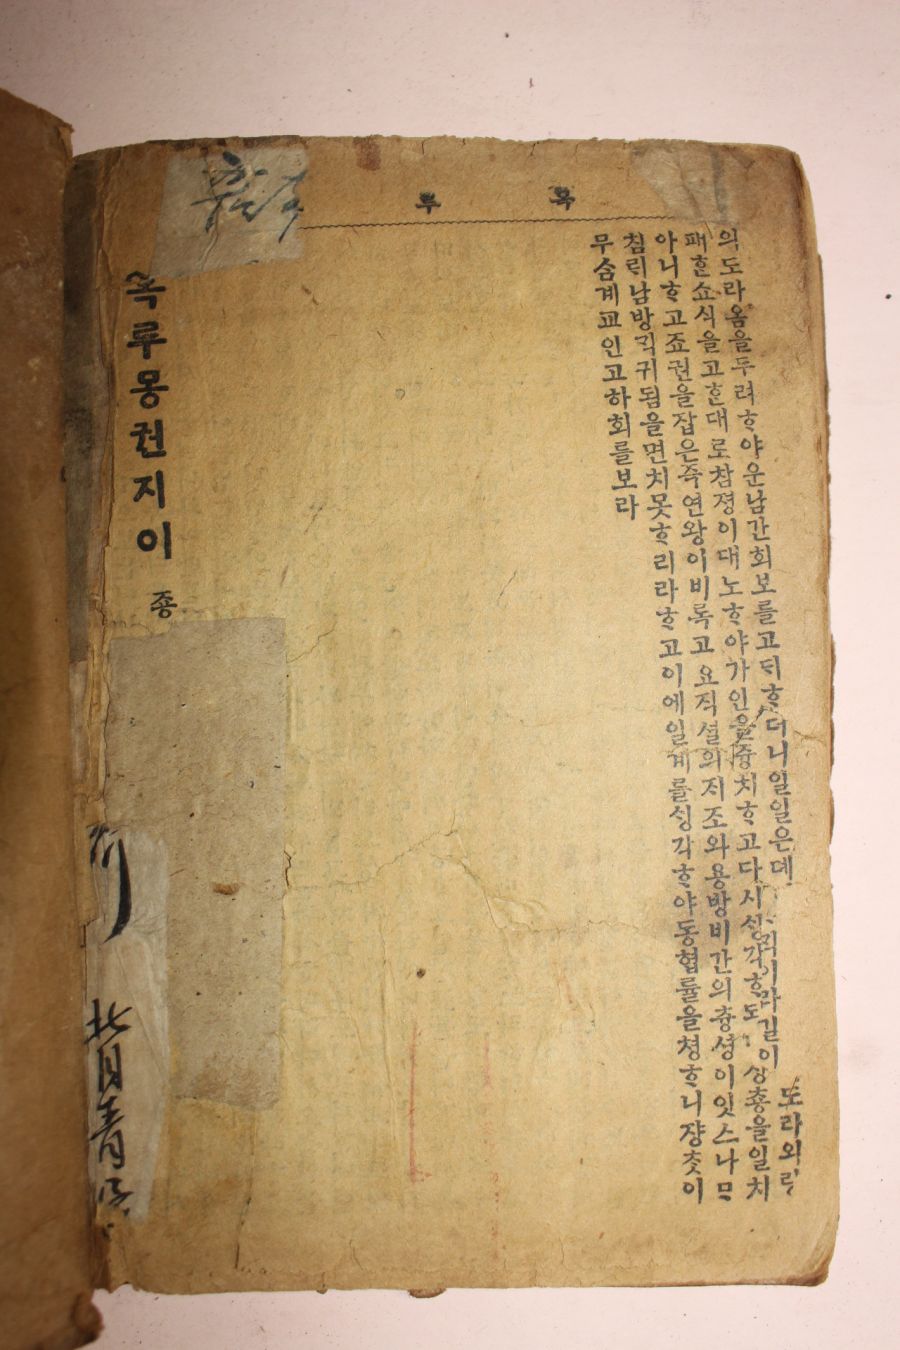 옥루
의도라옴을두려ᄒᆞ야운남간회보를고ᄃᆡᄒᆞ더니일일은데 길이 도라와
패ᄒᆞᆫ쇼식을고ᄒᆞᆫ대로참졍이대노ᄒᆞ야가인을중치ᄒᆞ고다시ᄉᆡᆼ각ᄒᆞ되 상춍을일치
아니ᄒᆞ고죠권을잡은즉연왕이비록고요직셜의지조와용방비간의츙셩이잇스나ᄆᆞ
침ᄂᆡ남방ᄀᆡᆨ귀됨을면치못ᄒᆞ리라ᄒᆞ고이에일계를ᄉᆡᆼ각ᄒᆞ야동협률을쳥ᄒᆞ니쟝ᄎᆞᆺ이
무ᄉᆞᆷ계교인고하회를보라
옥루몽권지이 죵